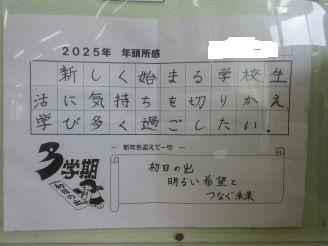 2025年 年頭所感
新しく始まる学校生
活に気持ちを切りかえ
学び多く過ごしたい。
― 新年を迎えて一句 ―
3学期
初日の出
初日の出
明るい希望と
つなぐ未来